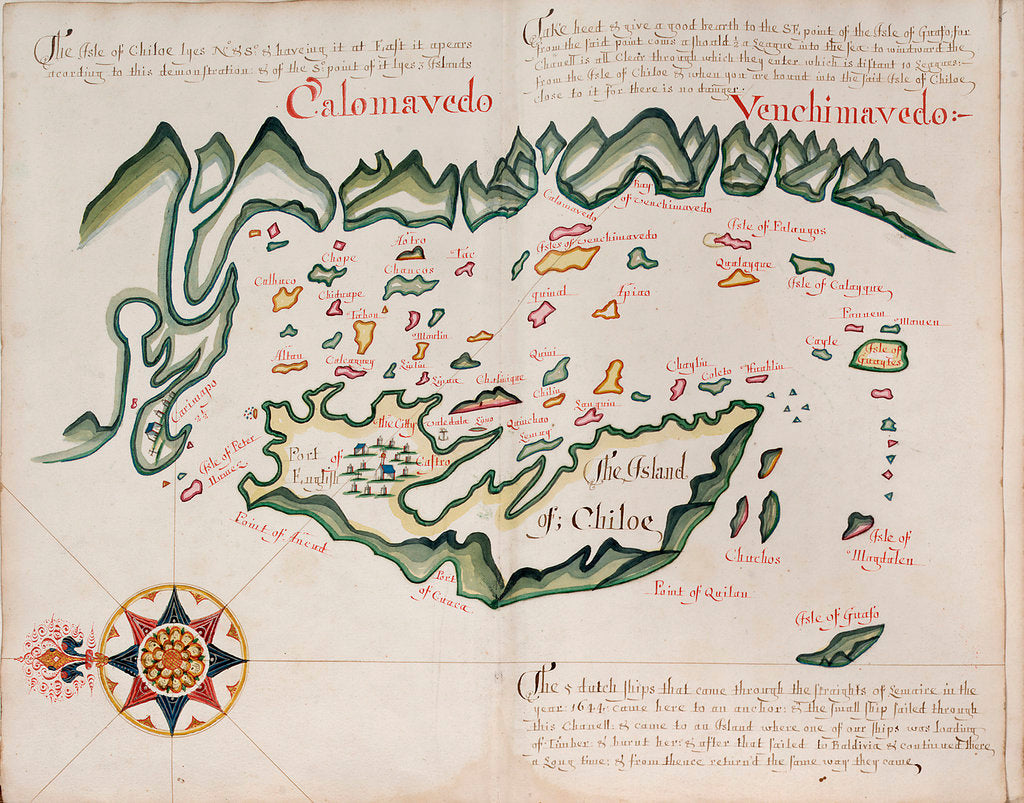 The Isle of Chiloe lyes No: & So: & haveing it at East it apears
acording to this demonstration: & of the So: point of it lyes 3 Islands
Take heed & give a good bearth to the SE. point of the Isle of Guafo, for
from the said point coms a shoald ½ a League into the sea to windward the
Chanell is all Clear through which they enter which is distant 10 Leagues:
from the Isle of Chiloe & when you are bound into the said Isle of Chiloe
close to it for there is no danger.
Calomavedo
Venchimavedo:~
Calomavedo
Bay
of Venchimavedo
Isles of Venchimavedo
Isle of Palangos
Quatayque
Isle of Calayque
Aotro
Chope
Chaucos
Tac
Calbuco
Chiduape
Tabon
Maulin
Altau
Calcaguey
Liulin
Linua
quinal
Apiao
Quini
Chelin
Chaulin
Coleto
Huahlin
Lauquin
Fannem
Mamen
Cayle
Isle of
Guaytes
Chaluique
Caledala
Lono
Quinchao
Lemuy
Carimapo
2½
B
Isle of Peter
Nunez
The Citty
of
Castro
Port
English
The Island
of; Chiloe
Point of Ancud
Port
of Cuaca
Point of Quilan
Chuchos
Isle of
Magdalen
Isle of Guafo
The 5 dutch ships that came through the straights of Lemaire in the
year 1644 came here to an anchor: & the small ship sailed through
this Chanell: & came to an Island where one of our ships was loading
of Timber & burnt her: & after that sailed to Baldivia & continued there
a Long time: & from thence return'd the same way they came,